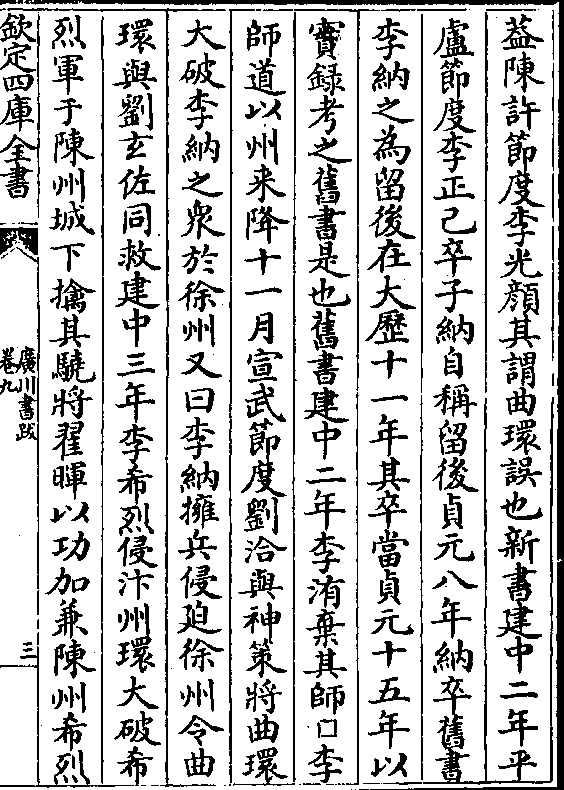 葢陳許節度李光顔其謂曲環誤也新書建中二年平
盧節度李正己卒子納自稱留後貞元八年納卒舊書
李納之為留後在大歷十一年其卒當貞元十五年以
實録考之舊書是也舊書建中二年李洧棄其師□李
師道以州来降十一月宣武節度劉洽與神策將曲環
大破李納之衆於徐州又曰李納擁兵侵廹徐州令曲
環與劉玄佐同救建中三年李希烈侵汴州環大破希
烈軍于陳州城下擒其驍將翟暉以功加兼陳州希烈
欽定四庫全書
廣川書跋
卷九
三